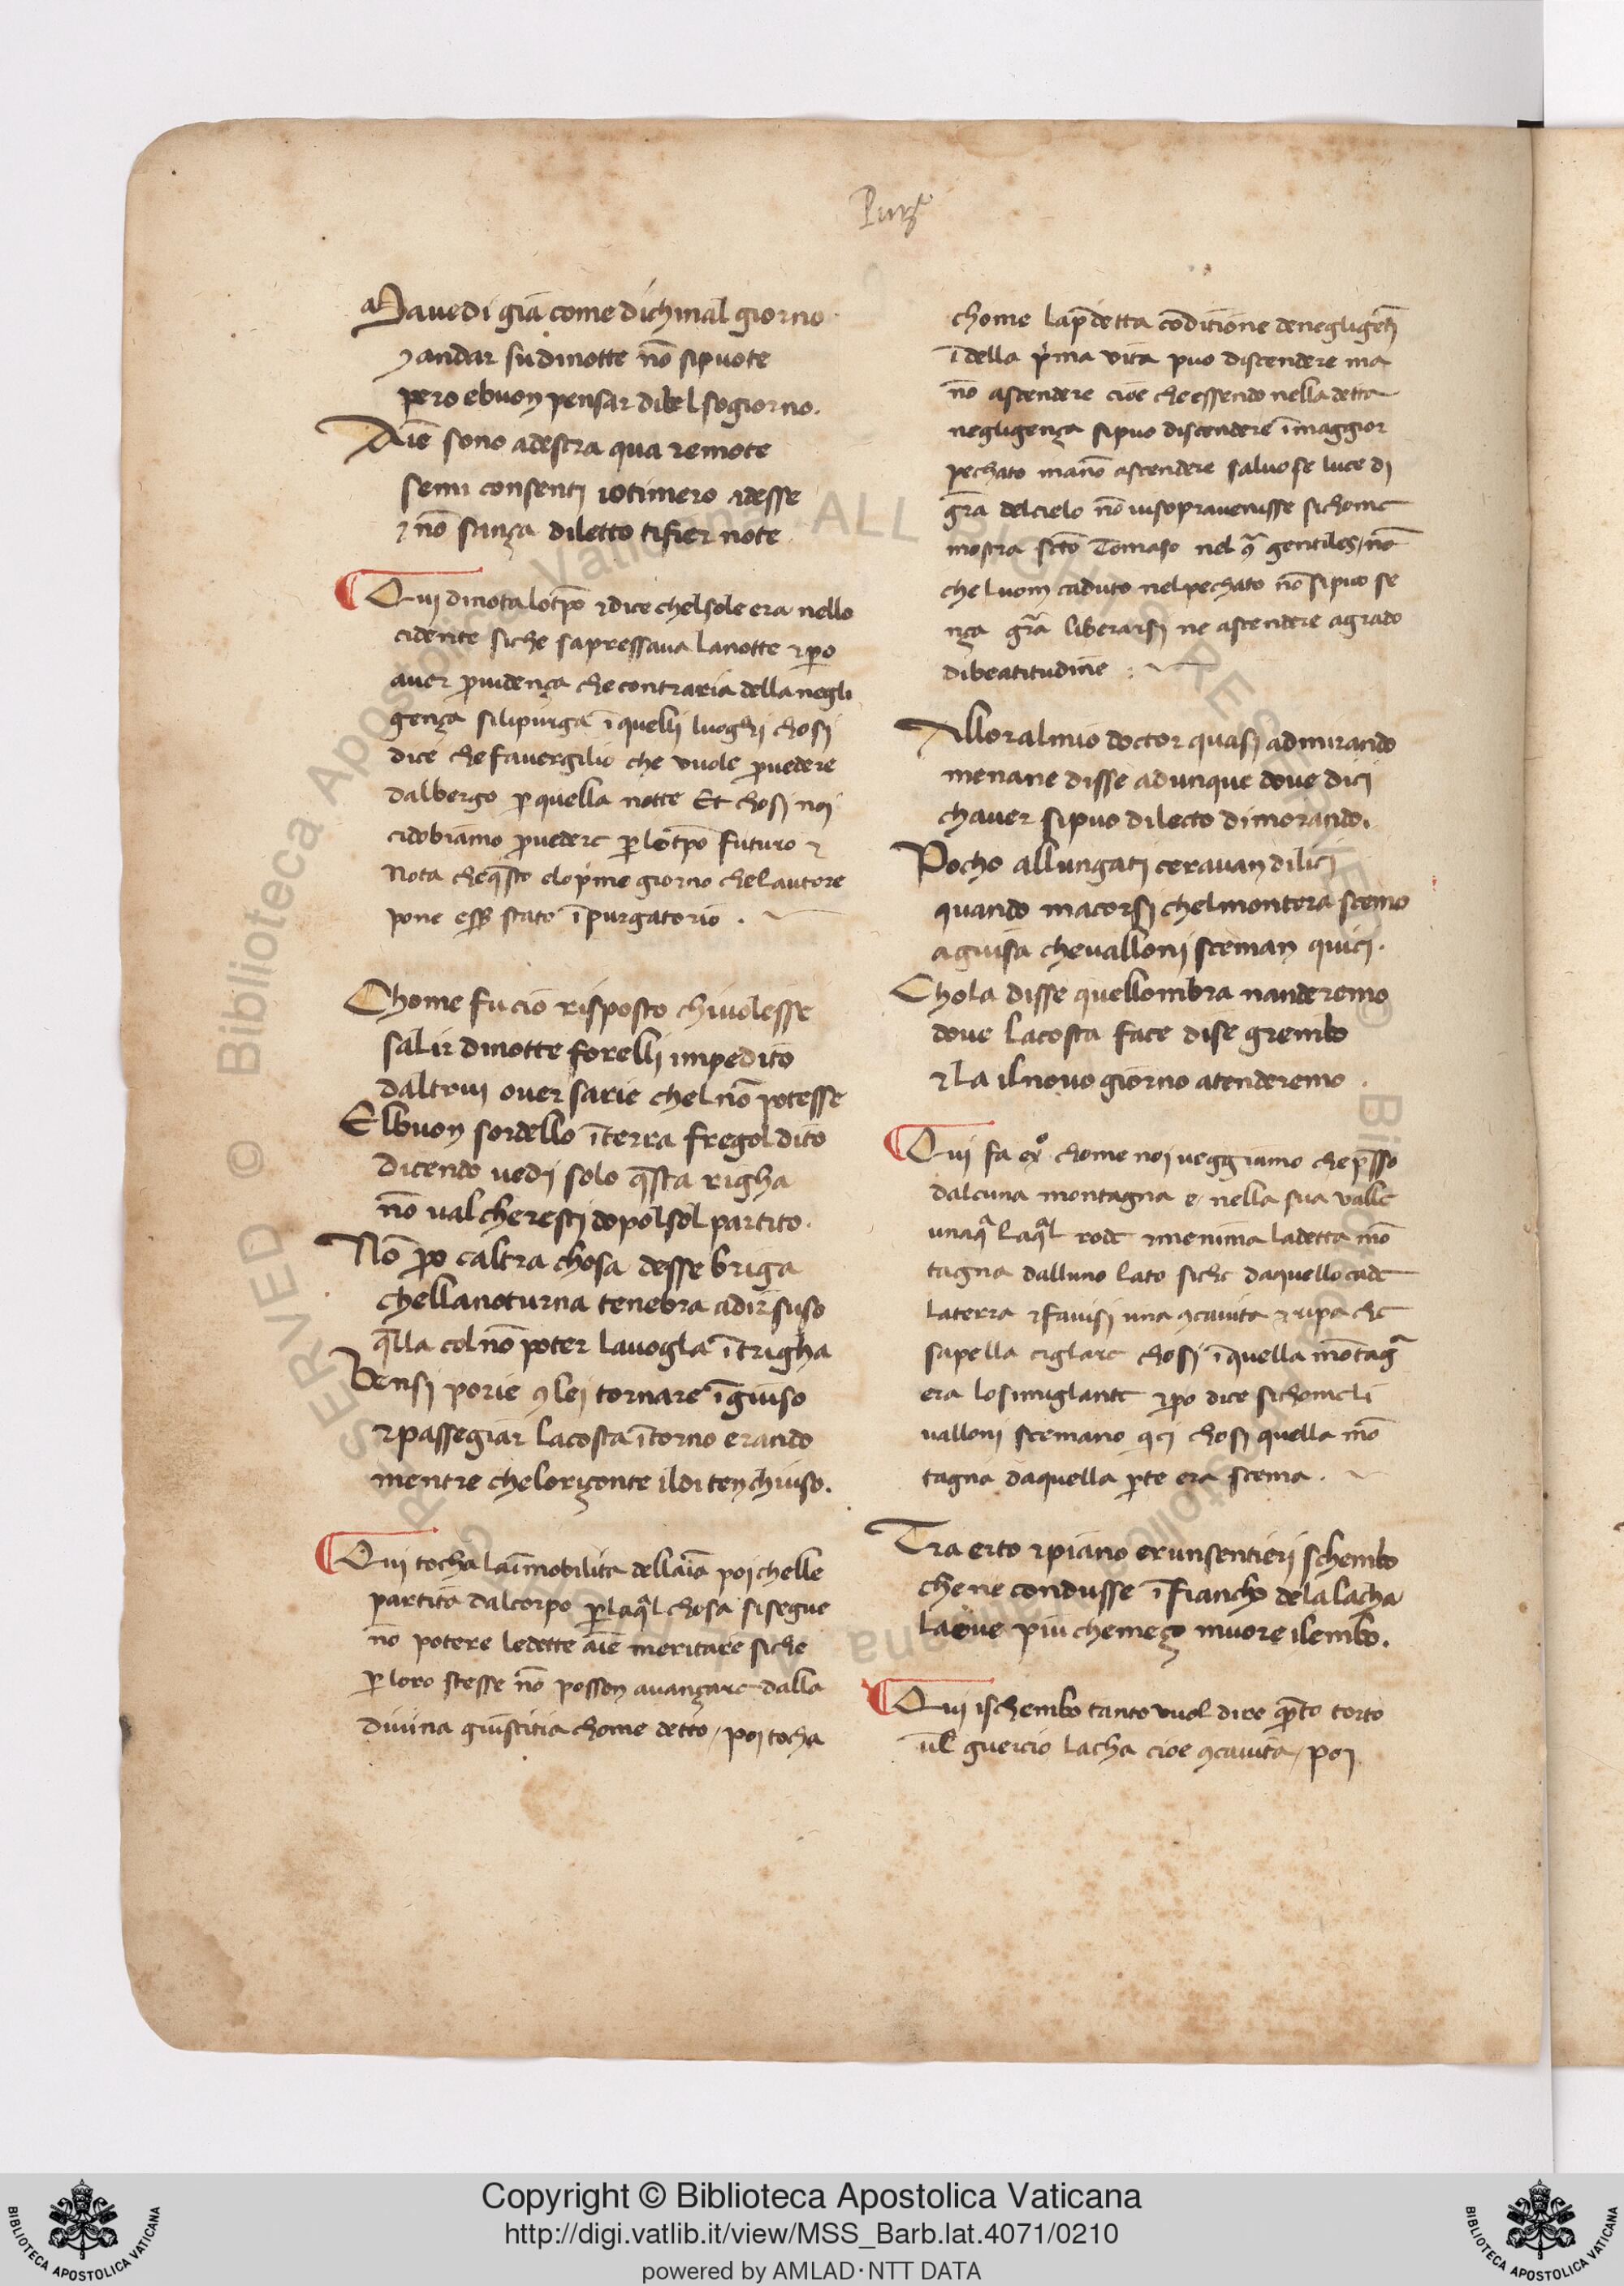 Purgᵒ
Ma vedi gia come dichinal giorno
⁊ andar su dinotte nō sipuote
pero ebuon pensar dibel sogiorno.
Aīe sono adestra qua remote
semi consenti iotimero adesse
⁊ nō sença diletto tifier note
Qui dinota lotp̄o ⁊ dice chelsole era nello
cidente siche sapressava lanotte ⁊ p̄o
aver p̄vidença che contraria della negli
gença silipurga ī quelli luoghi chosi
dice che favergilio che vuole p̄vedere
dalbergo p̄ quella notte Et chosi noi
cidobiamo p̄vedere p̄ lotp̄o futuro ⁊
Nota cheq̄sto elop̄me giorno chelautore
pone ess̄ stato ī purgatorio .
Chome fu cio risposto chivolesse
salir dinotte forelli impedito
daltrui over sarie chel nō potesse
Elbuon sordello īterra fregol dito
dicendo vedi solo q̄sta righa
nō val cheresti dopolsol partito.
Nō p̄o caltra chosa desse briga
chellanoturna tenebra adir suso
q̄lla col nō poter lavogla ītrigha
Bensi porie ꝯ lei tornare ī giuso
⁊ passegiar lacosta ītorno erando
mentre cheloriçonte ildi ten chiuso.
Qui tocha laīmobilita dellaīa poi chelle
partita dalcorpo p̄ laq̄l chosa sisegue
nō potere ledette aīe meritare siche
p̄ loro stesse nō posson avançare dalla
divina giustitia chome detto / poi tocha
chome lap̄detta cōditione denegligēti
ī della p̄ma vita puo discendere ma
nō ascendere cioe che essendo nella detta
negligença sipuo discendere ī maggior
pechato ma nō ascendere salvo se luce di
gr̄a delcielo nō visopravenisse sichome
mostra sc̄to Tomaso nel ꝯᵃ gentiles / nō
che luom caduto nelpechato nō sipuo se
nça gr̄a liberarsi ne ascendere agrado
dibeatitudine :
Alloralmio doctor quasi admirando
menane disse adunque dove dici
chaver sipuo dilecto dimorando.
Pocho allungati ceravan dilici
quando macorsi chelmontera scemo
aguisa chevalloni sceman quici.
Chola disse quellombra nanderemo
dove lacosta face dise grembo
⁊ la ilnovo giorno atenderemo .
Qui fa exᵒ chome noi veggiamo che p̄sso
dalcuna montagna e / nella sua valle
unaq̄ laq̄l rode ⁊ menima ladetta mō
tagna dalluno lato siche daquello cade
laterra ⁊ favisi una ꝯcavita ⁊ ripa che
sapella ciglare chosi ī quella mōtagᵃ
era losimiglante ⁊ p̄o dice sichome li
valloni scemano q̄ci chosi quella mō
tagna daquella p̄te era scema .
Tra erto ⁊ piano erunsentieri schembo
che ne condusse ī fiancho de la lacha
laove piu chemeço muore ilembo.
Qui ischembo tanto vuol dire q̄to torto
vl̄ guercio lacha cioe ꝯcavita / poi
Copyright © Biblioteca Apostolica Vaticana
http://digi.vatlib.it/view/MSS_Barb.lat.4071/0210
powered by AMLAD·NTT DATA